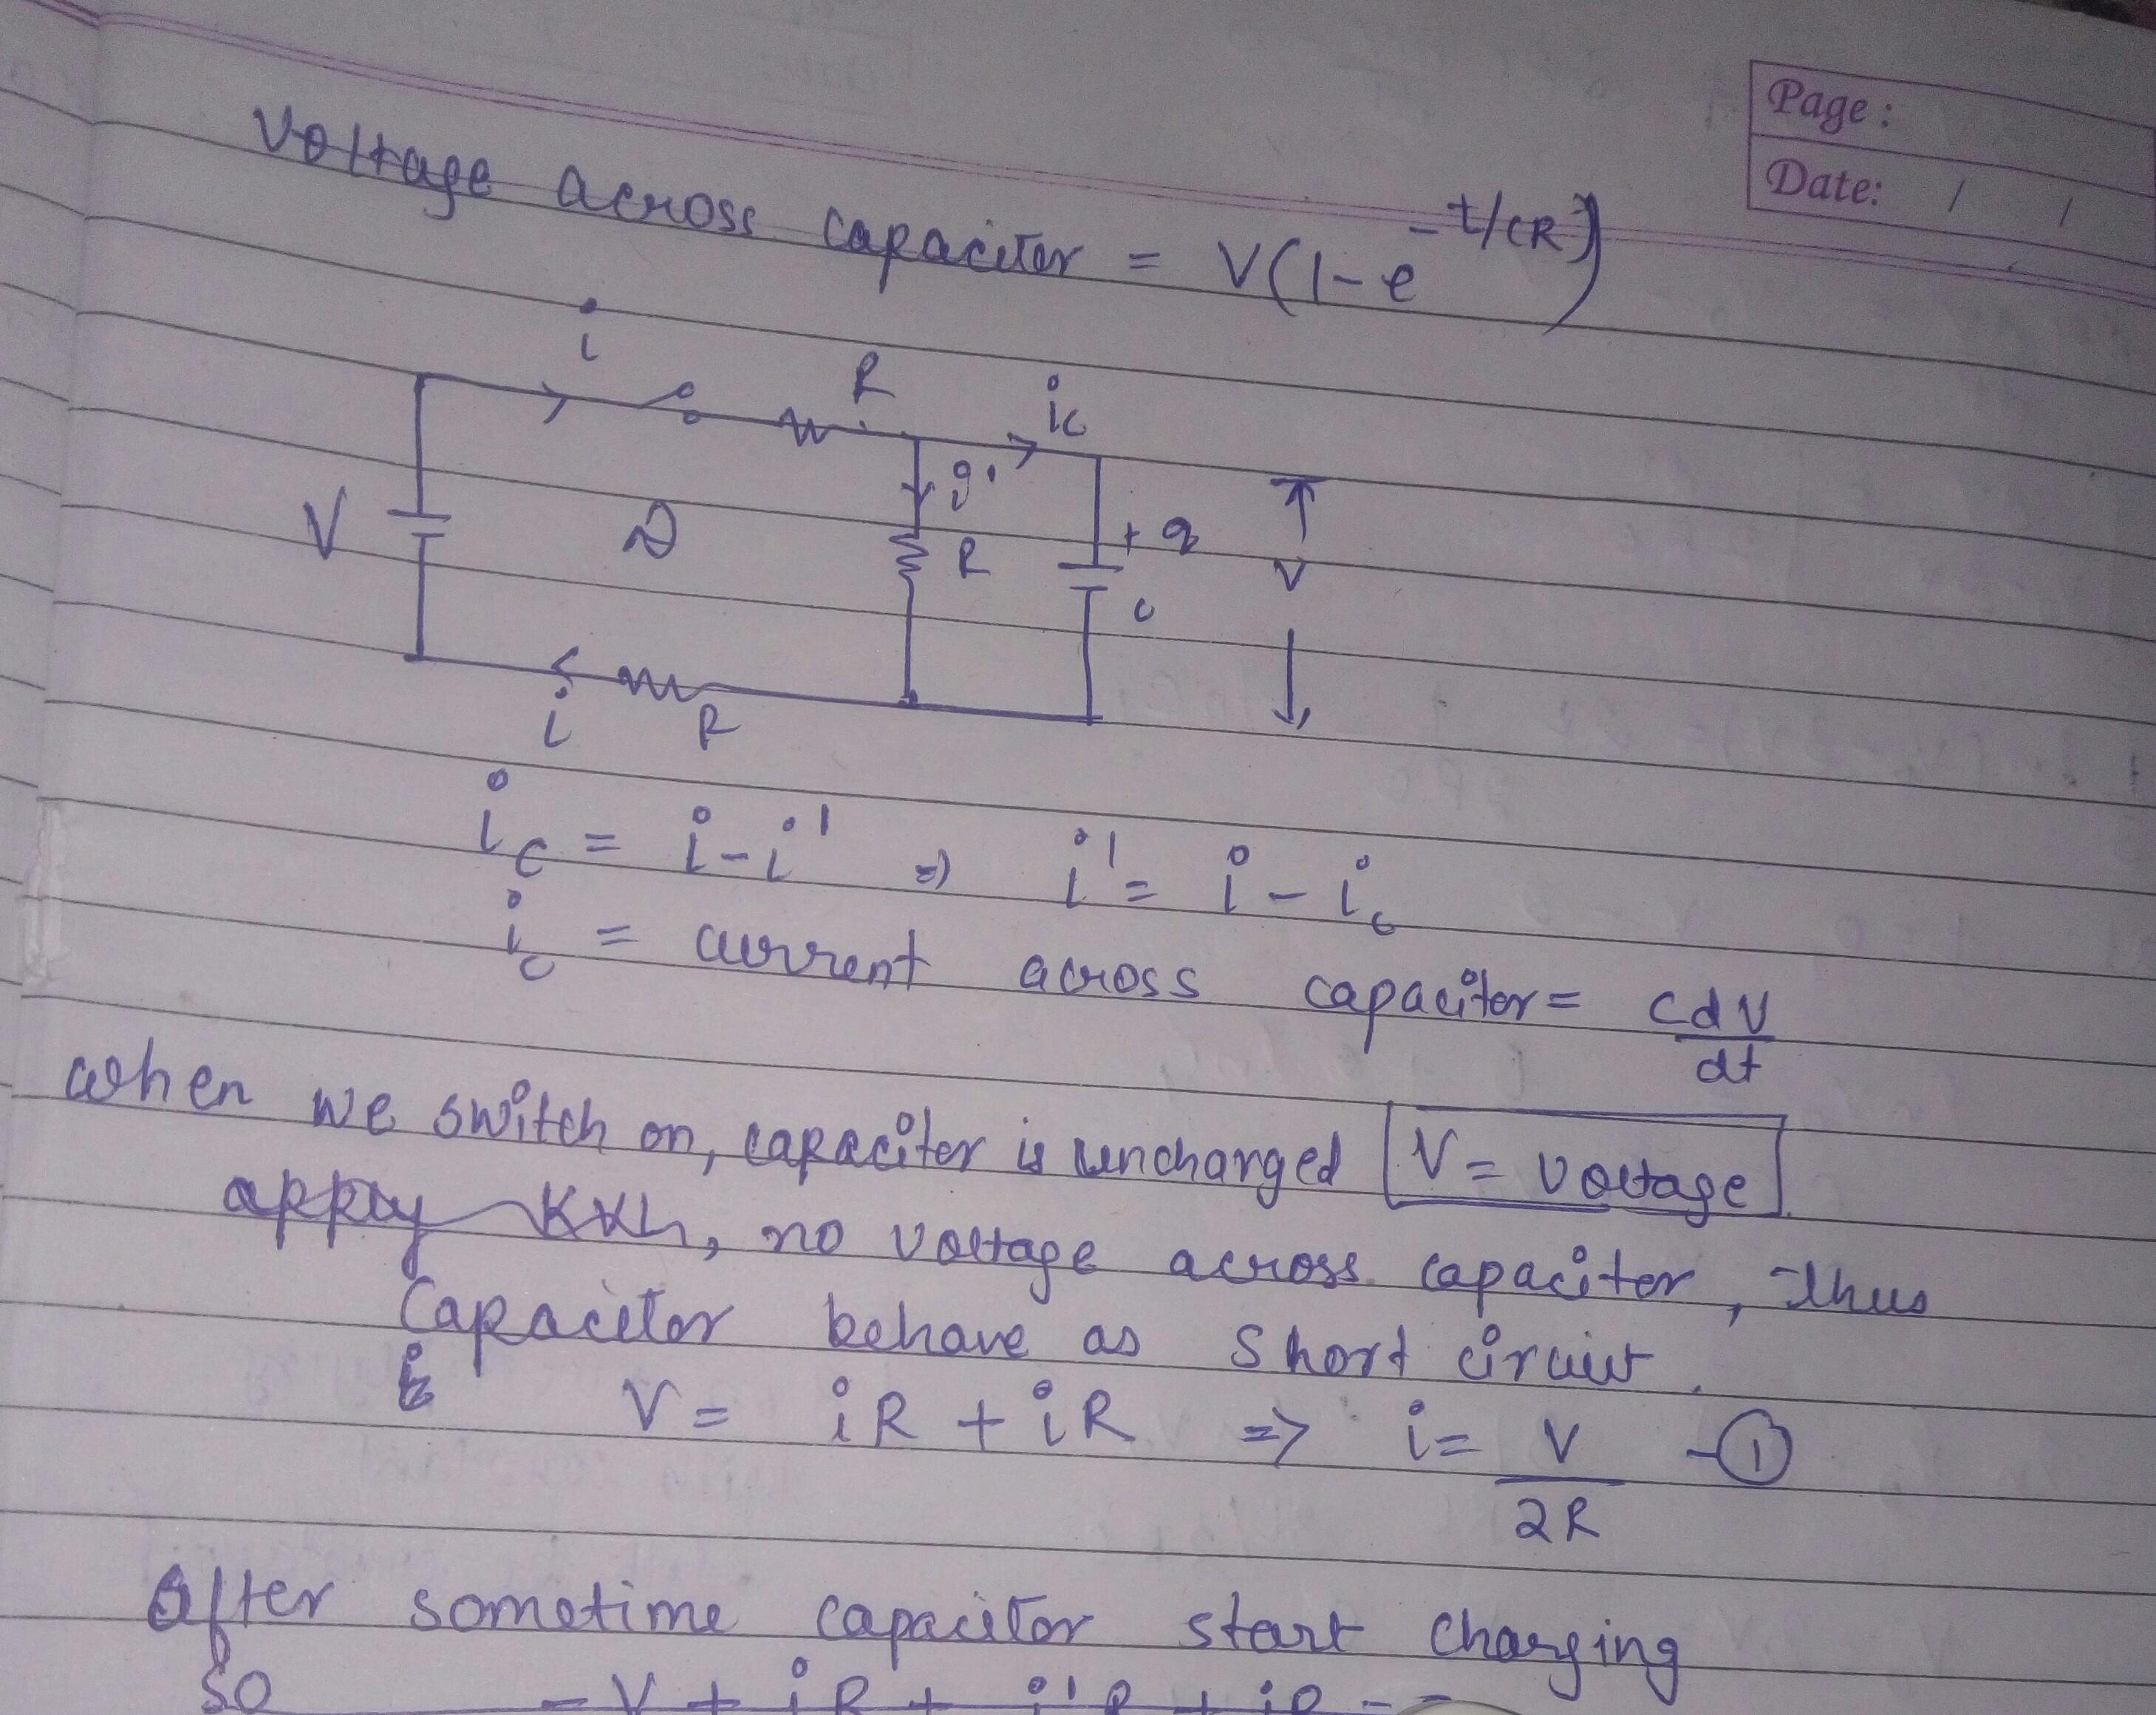 Page :
Date: / /
Voltage across capacitor = V(1-e^-t/CR)
i
R
ic
i'
V
R
+ q
c
V
i
R
ic = i-i' => i' = i - ic
ic = current across capacitor = cdV/dt
when we switch on, capacitor is uncharged V = voltage
apply KVL, no voltage across capacitor, Thus
Capacitor behave as short circuit.
V = iR + iR => i = V/2R -①
After sometime capacitor start charging
So -V + iR + i'R + iR =